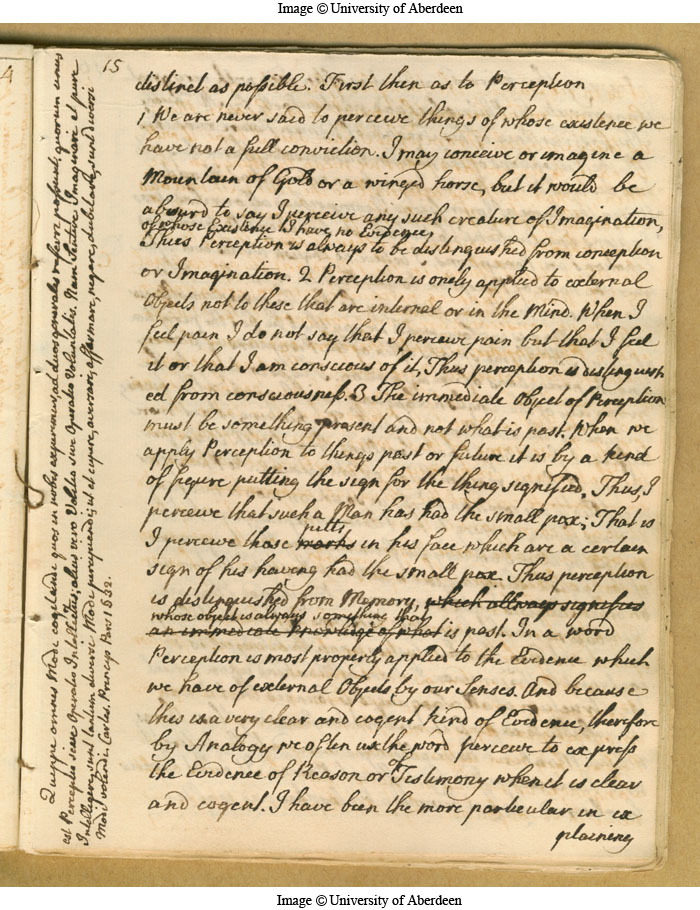 Image © University of Aberdeen
4
15
distinct as possible. First then as to Perception
1 We are never said to perceive things of whose existence we
have not a full conviction. I may conceive or imagine a
Mountain of Gold or a winged horse, but it would be
absurd to say I perceive any such creature of Imagination,
of whose Existence I have no Evidence,
Thus Perception is always to be distinguished from conception
or Imagination. 2 Perception is onely applied to external
Objects not to these that are internal or in the Mind. When I
feel pain I do not say that I perceive pain but that I feel
it or that I am conscious of it, Thus perception is distinguish
ed from consciousness. 3 The immediate Object of Perception
must be something present and not what is past. When we
apply Perception to things past or future it is by a kind
of figure putting the sign for the thing signified. Thus, I
perceive that such a Man has had the small pox; That is
pitts
I perceive those marks in his face which are a certain
sign of his having had the small pox. Thus perception
is distinguished from Memory, which allways signifies
whose object is always something that
an immediate Knowledge of what is past. In a word
Perception is most properly applied to the Evidence which
we have of external Objects by our Senses. And because
this is a very clear and cogent kind of Evidence, therefore
by Analogy we often use the word perceive to express
the Evidence of Reason or Testimony when it is clear
and cogent. I have been the more particular in ex
plaining
Quippe omnes Modi cogitandi quos in nobis experimur, ad duos generales referri possunt, quorum unus
est Perceptio sive Operatio Intellectus; alius vero Volitio sive Operatio Voluntatis. Nam Sentire Imaginari et pure
Intelligere, sunt tantum diversi Modi percipiendi; ut et cupere, aversari, affirmare, negare, dubitare, sunt diversi
Modi volendi. Cartes. Princip Pars 1 § 32.
Image © University of Aberdeen